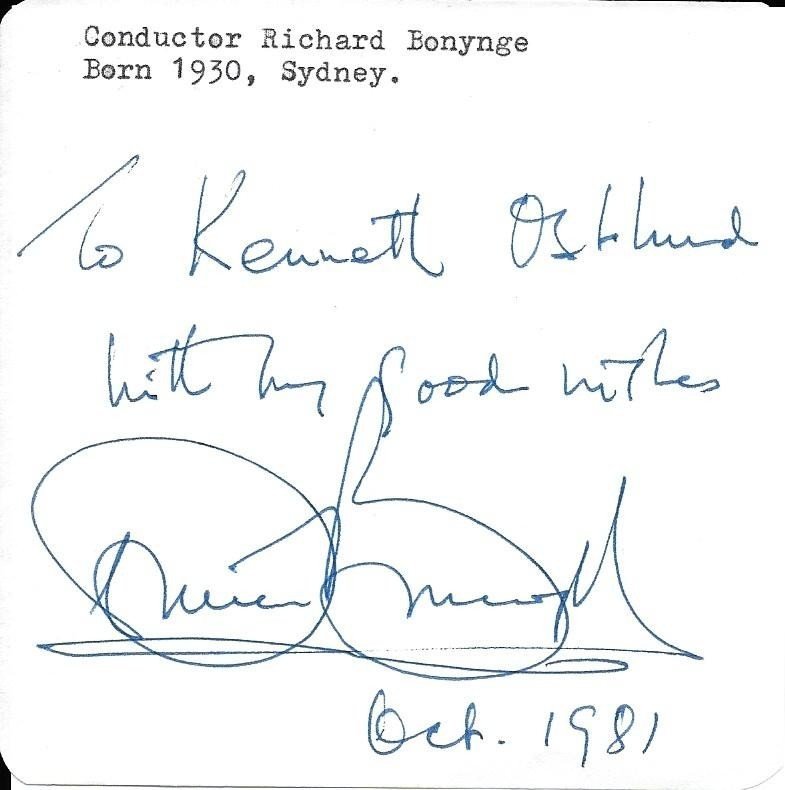 Conductor Richard Bonynge
Born 1930, Sydney.
To Kenneth Ostlund
with my good wishes
Oct. 1981